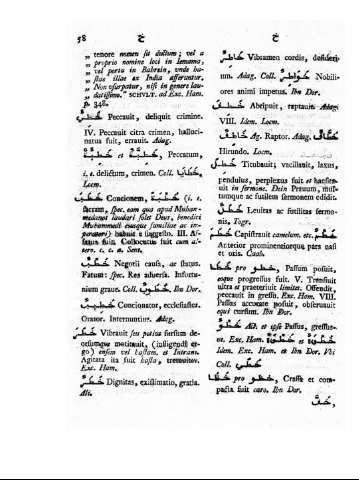 58 خ
„ tenore meum sit dictum; vel a
„ proprio nomine loci in Iemama,
„ vel portu in Bahrein, unde ha-
„ stas illae ex India afferuntur.
„ Non usurpatur, nisi in genere lau-
„ SCHVLT. ad Exc. Ham.
p. 348.
Peccauit, deliquit crimine.
IV. Peccauit citra crimen, halluci-
natus fuit, errauit. Adag.
خطيّة et خطيئة, Peccatum,
i. e. delictum, crimen. Coll. خطايا.
Locm.
Concionem, خطبة (i. e.
spec. eam qua apud Muham-
medanos laudari solet Deus, benedici
Muhammedi eiusque familiae ac im-
habuit e suggesto. III. Af-
fatus fuit. Collocutus fuit cum al-
tero. c. c. a. Sent.
خطب Negotii causa, ac status.
Fatum: spec. Res aduersa. Infortu-
nium graue. Coll. خطوب. Ibn Dor.
خطيب Concionator, ecclesiastes.
Orator. Internuntius. Adag.
خطر Vibrauit seu potius sursum de-
orsumque motitauit,
ensem vel hastam. et Intrans.
Agitata ita fuit hasta,
Exc. Ham.
خطر Dignitas, existimatio, gratia.
Ali.
خ
خاطر Vibramen cordis,
Adag. Coll. خواطر Nobili-
ores animi impetus. Ibn Dor.
خطف Abripuit, raptauit. Adag.
VIII. Idem. Locm.
خاطف Ag. Raptor. Adag. خطّاف
Hirundo. Locm.
خطل Titubauit; vacillauit, laxus,
pendulus, perplexus fuit et
in sermone. Dein Prauum, mul-
tumque ac futilem sermonem edidit.
خطل Leuitas ac futilitas sermo-
nis. Togr.
Capistrauit camelum. etc. خطم
Anterior prominentiorque pars nasi
et oris. Caab.
خطا pro خطو, Passum posuit,
eoque progressus fuit. V. Transiuit
ultra et praeteriuit limites. Offendit,
peccauit in gressu. Exc. Ham. VIII.
Passus accurate posuit, obseruauit
equi cursum. Ibn Dor.
خطو AD. et ipse Passus, gressus-
ue. Exc. Ham. خطوة et خطوة
Idem. Exc. Ham. et Ibn Dor. Vbi
Coll.
pro خظو, Crassa et com-
pacta fuit caro. Ibn Dor.
خف